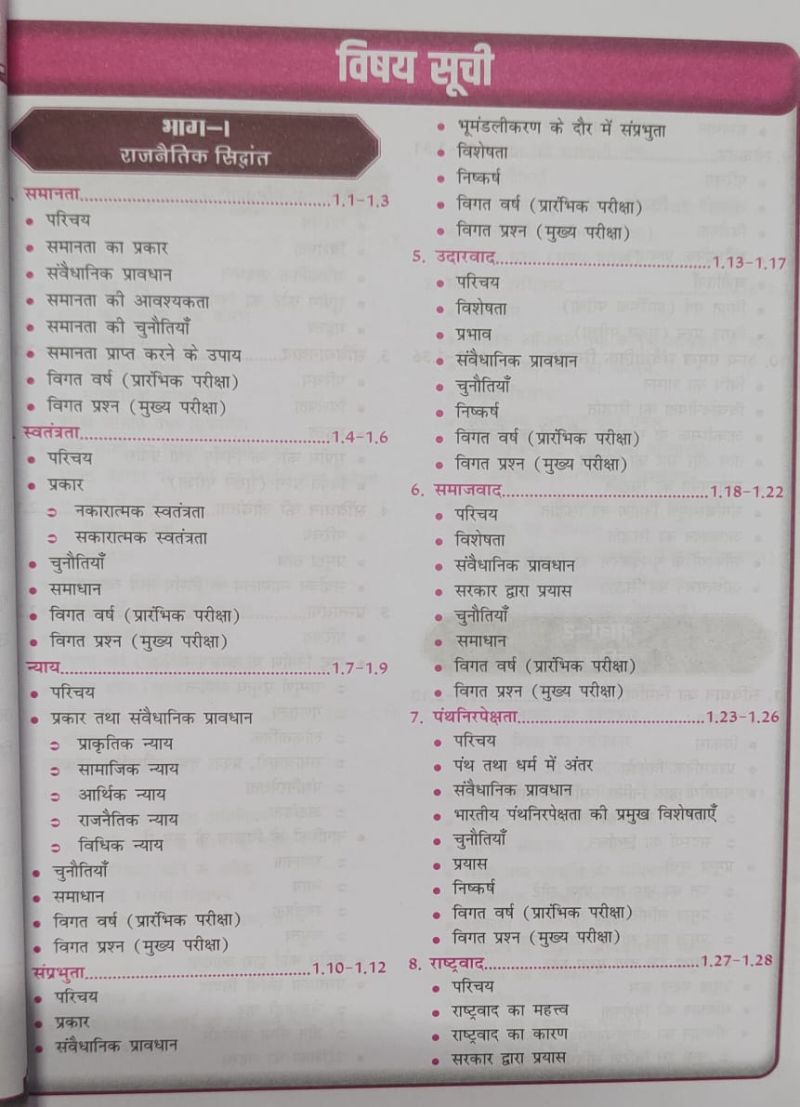 विषय सूची
भाग-I
राजनैतिक सिद्धांत
समानता....................................................1.1-1.3
• परिचय
• समानता का प्रकार
• संवैधानिक प्रावधान
• समानता की आवश्यकता
• समानता की चुनौतियाँ
• समानता प्राप्त करने के उपाय
• विगत वर्ष (प्रारंभिक परीक्षा)
• विगत प्रश्न (मुख्य परीक्षा)
स्वतंत्रता....................................................1.4-1.6
• परिचय
• प्रकार
➲ नकारात्मक स्वतंत्रता
➲ सकारात्मक स्वतंत्रता
• चुनौतियाँ
• समाधान
• विगत वर्ष (प्रारंभिक परीक्षा)
• विगत प्रश्न (मुख्य परीक्षा)
न्याय....................................................1.7-1.9
• परिचय
• प्रकार तथा संवैधानिक प्रावधान
➲ प्राकृतिक न्याय
➲ सामाजिक न्याय
➲ आर्थिक न्याय
➲ राजनैतिक न्याय
➲ विधिक न्याय
• चुनौतियाँ
• समाधान
• विगत वर्ष (प्रारंभिक परीक्षा)
• विगत प्रश्न (मुख्य परीक्षा)
संप्रभुता....................................................1.10-1.12
• परिचय
• प्रकार
• संवैधानिक प्रावधान
• भूमंडलीकरण के दौर में संप्रभुता
• विशेषता
• निष्कर्ष
• विगत वर्ष (प्रारंभिक परीक्षा)
• विगत प्रश्न (मुख्य परीक्षा)
5. उदारवाद....................................................1.13-1.17
• परिचय
• विशेषता
• प्रभाव
• संवैधानिक प्रावधान
• चुनौतियाँ
• निष्कर्ष
• विगत वर्ष (प्रारंभिक परीक्षा)
• विगत प्रश्न (मुख्य परीक्षा)
6. समाजवाद....................................................1.18-1.22
• परिचय
• विशेषता
• संवैधानिक प्रावधान
• सरकार द्वारा प्रयास
• चुनौतियाँ
• समाधान
• विगत वर्ष (प्रारंभिक परीक्षा)
• विगत प्रश्न (मुख्य परीक्षा)
7. पंथनिरपेक्षता....................................................1.23-1.26
• परिचय
• पंथ तथा धर्म में अंतर
• संवैधानिक प्रावधान
• भारतीय पंथनिरपेक्षता की प्रमुख विशेषताएँ
• चुनौतियाँ
• प्रयास
• निष्कर्ष
• विगत वर्ष (प्रारंभिक परीक्षा)
• विगत प्रश्न (मुख्य परीक्षा)
8. राष्ट्रवाद....................................................1.27-1.28
• परिचय
• राष्ट्रवाद का महत्त्व
• राष्ट्रवाद का कारण
• सरकार द्वारा प्रयास